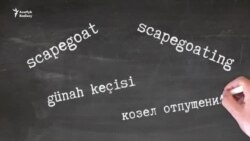 Azadlıq
Radiosu
scapegoat
scapegoating
günah keçisi
козел отпущения